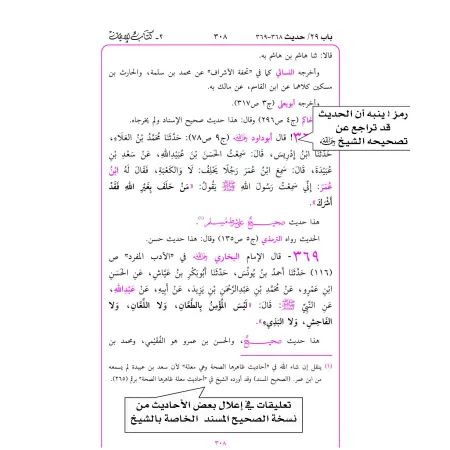 باب ٢٩/ حديث ٣٦٨-٣٦٩
٣٠٨
٢- كتاب الإيمان
قالا: ثنا هاشم بن هاشم به.
وأخرجه النسائي كما في "تحفة الأشراف" عن محمد بن سلمة، والحارث بن
مسكين كلاهما عن ابن القاسم، عن مالك به.
وأخرجه أبويعلى (ج٣ ص٣١٧).
(ج٤ ص٢٩٦) وقال: هذا حديث صحيح الإسناد ولم يخرجاه.
قال أبوداود رحمه الله (ج٩ ص٧٨): حَدَّثَنَا مُحَمَّدُ بْنُ الْعَلَاءِ،
حَدَّثَنَا ابْنُ إِدْرِيسَ، قَالَ: سَمِعْتُ الْحَسَنَ بْنَ عُبَيْدِاللهِ، عَنْ سَعْدِ بْنِ
عُبَيْدَةَ، قَالَ: سَمِعَ ابْنُ عُمَرَ رَجُلًا يَحْلِفُ: لَا وَالْكَعْبَةِ، فَقَالَ لَهُ ابْنُ
عُمَرَ: إِنِّي سَمِعْتُ رَسُولَ اللهِ ﷺ يَقُولُ: «مَنْ حَلَفَ بِغَيْرِ اللهِ فَقَدْ
أَشْرَكَ».
هذا حديث صحيح على شرط مسلم (١).
الحديث رواه الترمذي (ج٥ ص١٣٥) وقال: هذا حديث حسن.
٣٦٩- قال الإمام البخاري رحمه الله في "الأدب المفرد" ص
(١١٦) حَدَّثَنَا أَحْمَدُ بْنُ يُونُسَ، حَدَّثَنَا أَبُوبَكْرِ بْنُ عَيَّاشٍ، عَنِ الْحَسَنِ
ابْنِ عَمْرٍو، عَنْ مُحَمَّدِ بْنِ عَبْدِالرَّحْمَنِ بْنِ يَزِيدَ، عَنْ أَبِيهِ، عَنْ عَبْدِاللهِ،
عَنِ النَّبِيِّ ﷺ قَالَ: «لَيْسَ الْمُؤْمِنُ بِالطَّعَّانِ، وَلَا اللَّعَّانِ، وَلَا
الْفَاحِشِ، وَلَا الْبَذِيءِ».
هذا حديث صحيح، والحسن بن عمرو هو الفُقَيْمِي، ومحمد بن
(١) ينقل إن شاء الله في "أحاديث ظاهرها الصحة وهي معلة" لأن سعد بن عبيدة لم يسمعه
من ابن عمر. (الصحيح المسند) وقد أورده الشيخ في "أحاديث معلة ظاهرها الصحة" برقم (٢٦٥).
٣٠٨
رمز ! ينبه أن الحديث
قد تراجع عن
تصحيحه الشيخ رحمه الله
تعليقات في إعلال بعض الأحاديث من
نسخة الصحيح المسند الخاصة بالشيخ